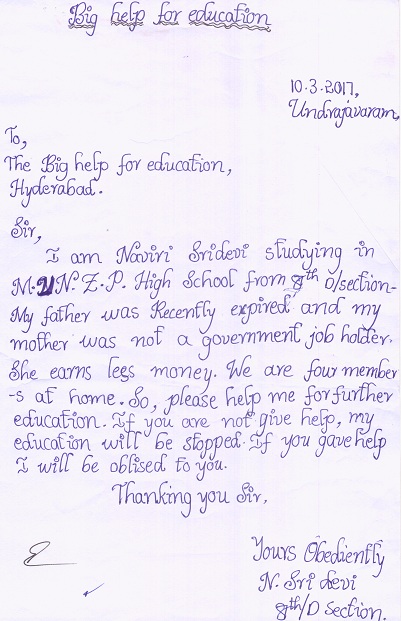 Big help for education
10.3.2017,
Undrajavaram,
To,
The Big help for education,
Hyderabad.
Sir,
I am Naviri Sridevi studying in
M.U.N.Z.P. High School from 8th D/section-
My father was Recently expired and my
mother was not a government job holder.
She earns less money. We are four member
-s at home. So, please help me for further
education. If you are not give help, my
education will be stopped. If you gave help
I will be oblised to you.
Thanking you Sir,
Yours Obediently
N. Sri devi
8th/D section.